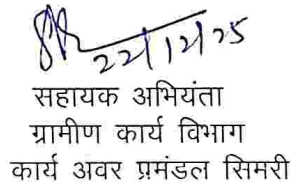 22/12/25
सहायक अभियंता
ग्रामीण कार्य विभाग
कार्य अवर प्रमंडल सिमरी